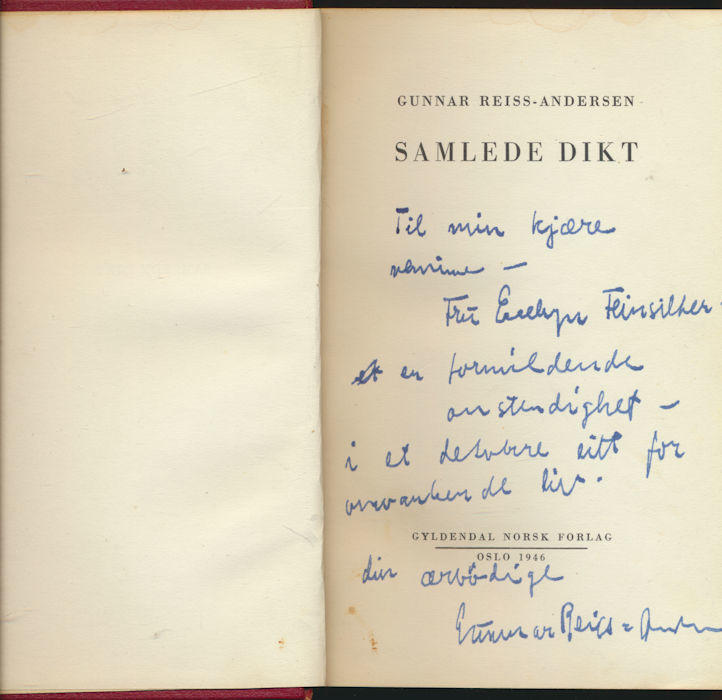 GUNNAR REISS-ANDERSEN
SAMLEDE DIKT
Til min kjære
veninne —
Fru Evelyn Feinsilber
et en formildende
omstendighet —
i et desverre litt for
omvankende liv.
GYLDENDAL NORSK FORLAG
OSLO 1946
din ærbødige
Gunnar Reiss-Andersen